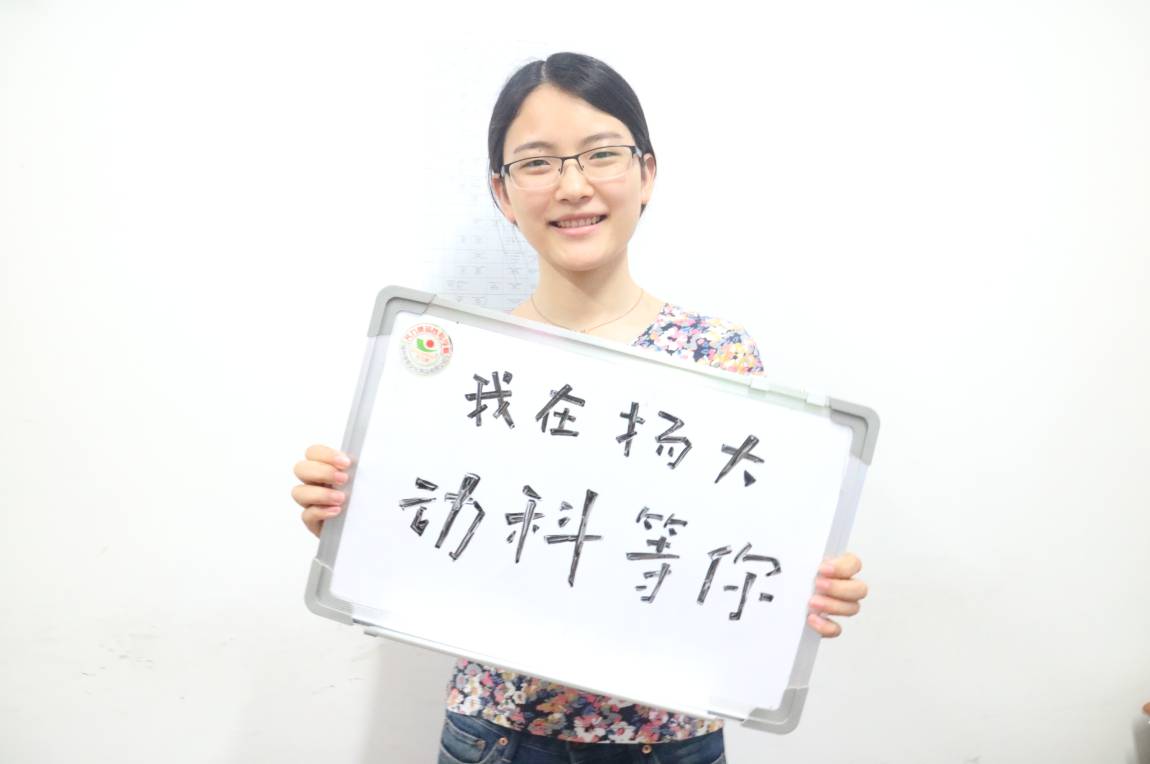 我在扬大
动科等你